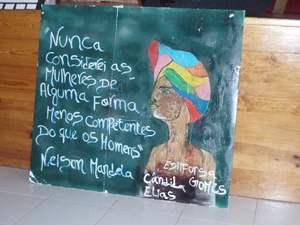 "Nunca
Considerei as
Mulheres de
Alguma Forma
Menos Competentes
Do que os Homens"
Nelson Mandela
Cândida Gomes
Elias